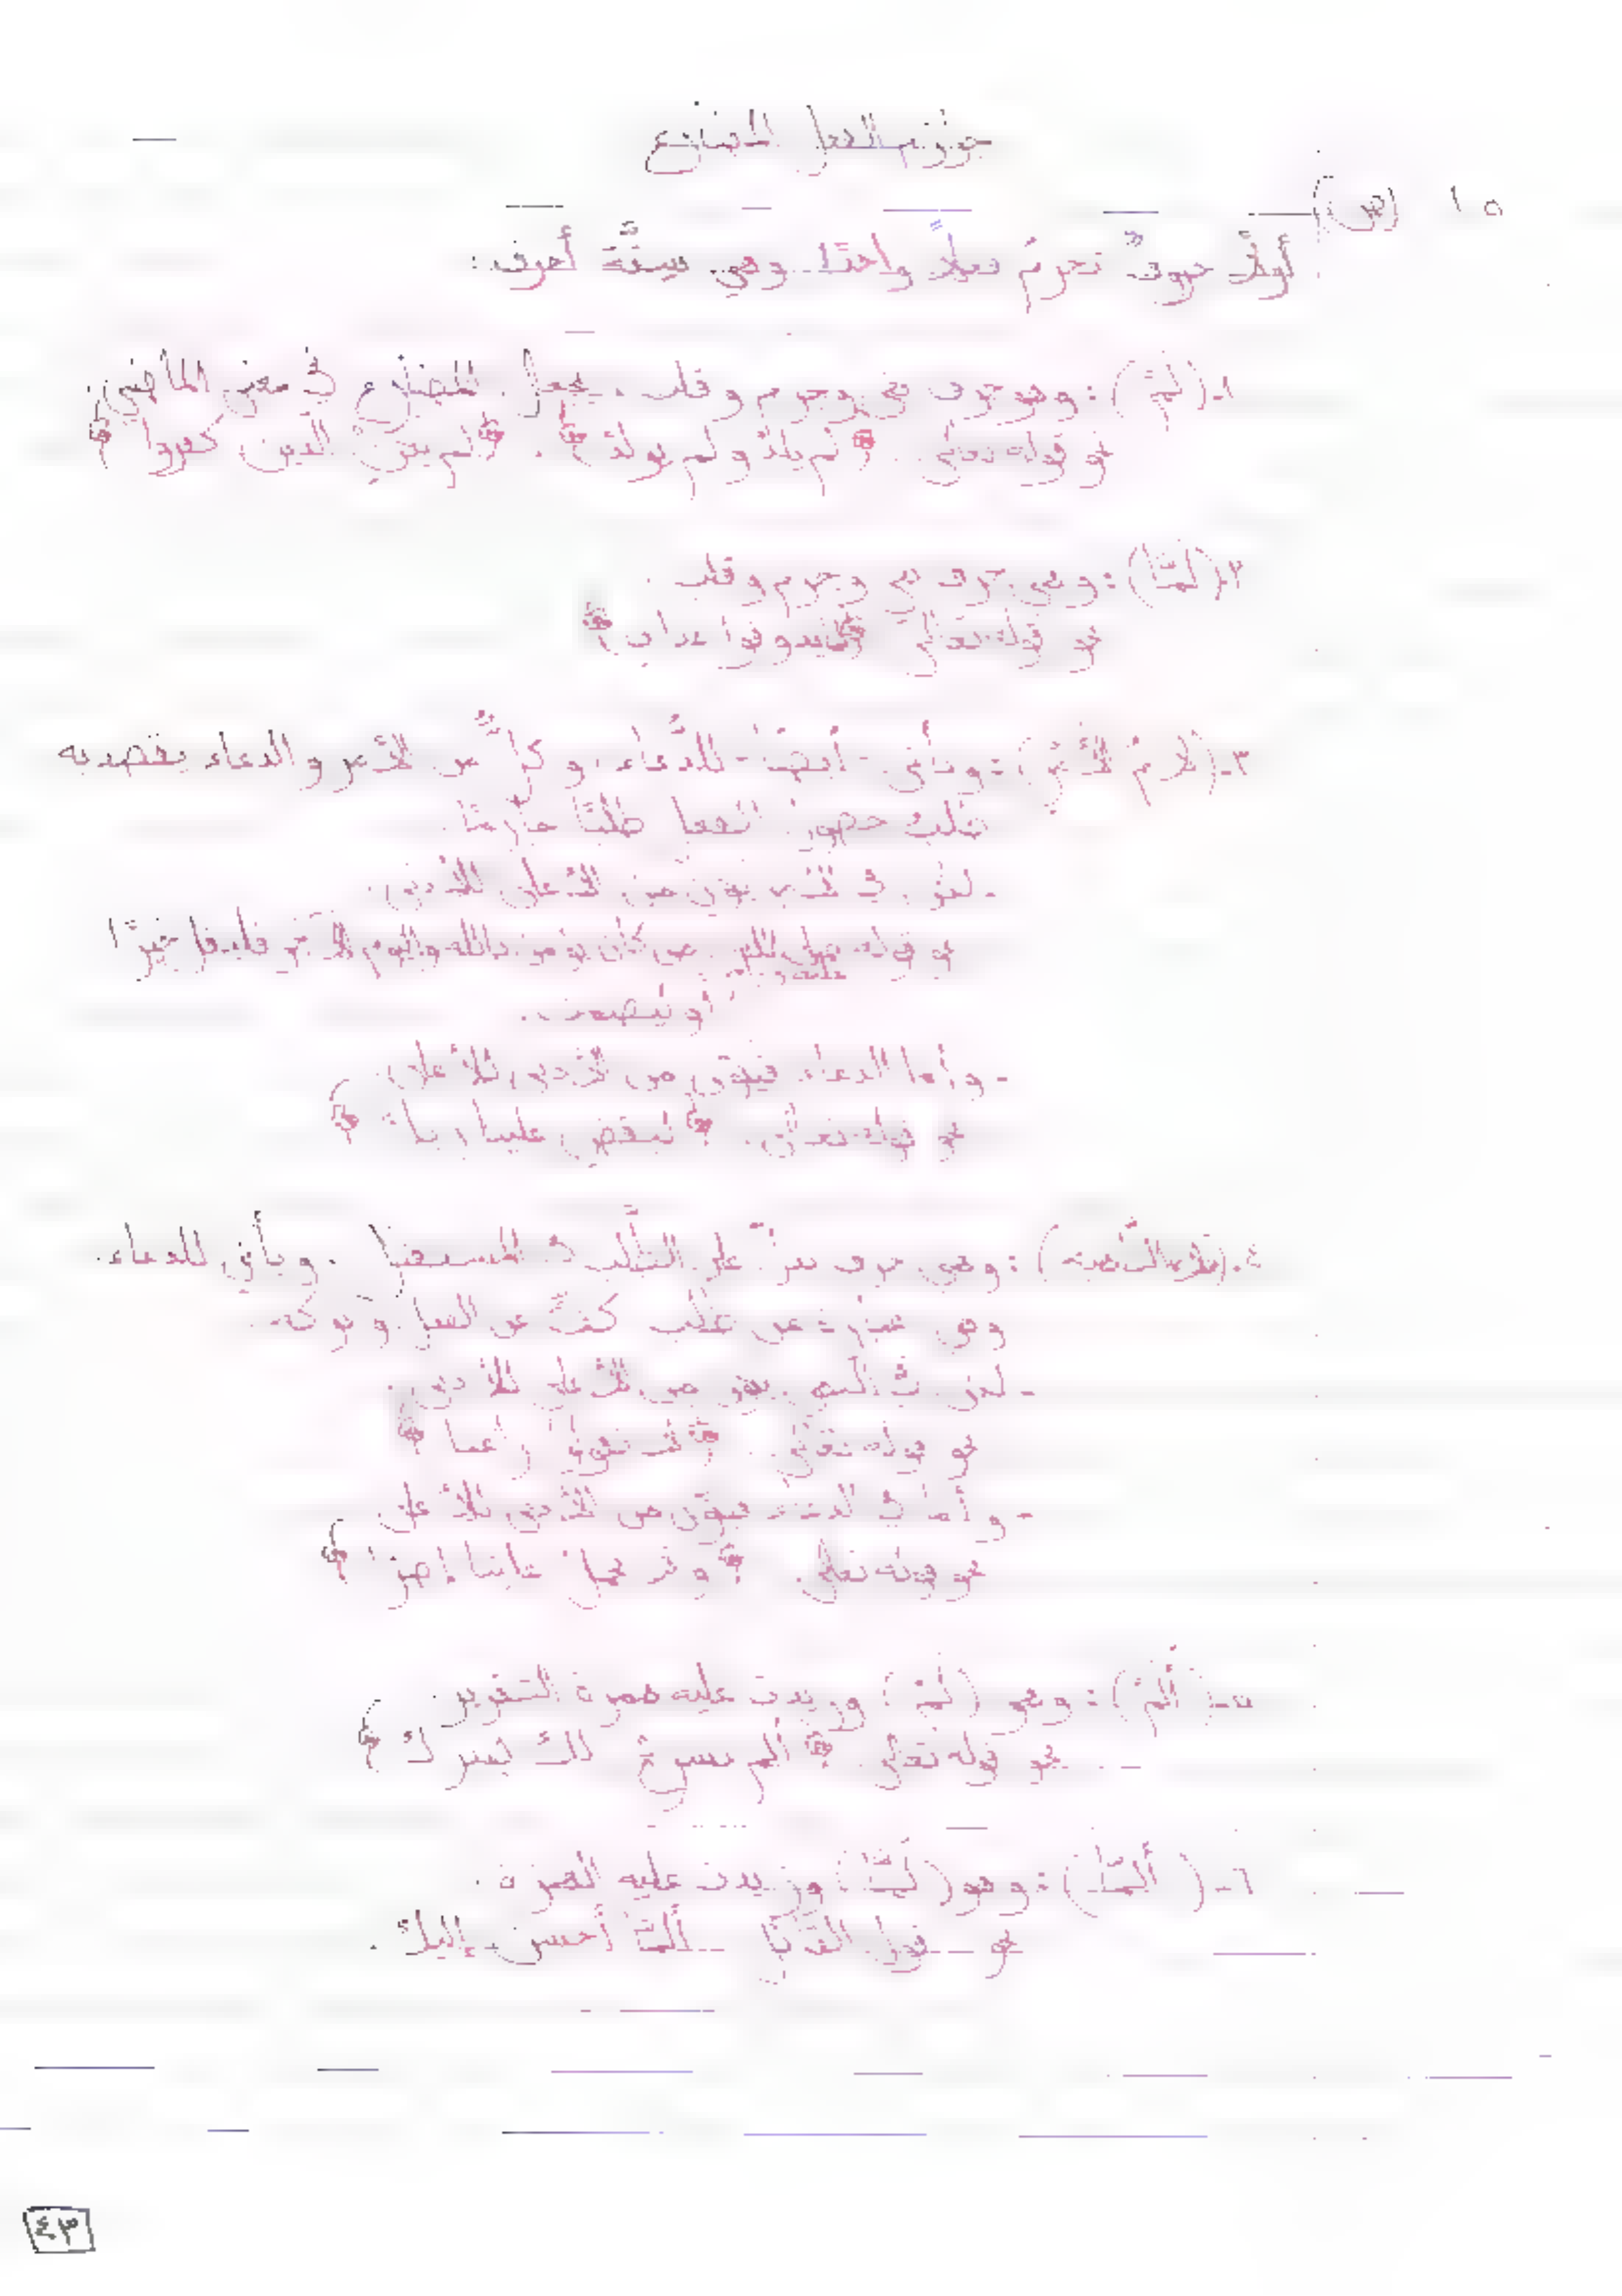 جوازم الفعل المضارع
١٥ (س)
أولاً حروف تجزم فعلاً واحدًا وهي ستَّة أحرف:
١-(لَمْ): وهو حرف نفي وجزم وقلب، يجعل المضارع في معنى الماضي،
نحو قوله تعالى ﴿لم يلد ولم يولد﴾. ﴿لم يكن الذين كفروا﴾
٢-(لمَّا): وهي حرف نفي وجزم وقلب.
نحو قوله تعالى ﴿لما يذوقوا عذاب﴾
٣-(لامُ الأمر): وتأتي - أيضًا - للدُّعاء، وكلٌّ من الأمر والدعاء يقصد به
طلب حصول الفعل طلبًا جازمًا.
- لكن في الأمر يكون من الأعلى للأدنى.
نحو قوله صلى الله عليه من كان يؤمن بالله واليوم الآخر فليقل خيرًا
أو ليصمت.
- وأما الدعاء فيكون من الأدنى للأعلى.
نحو قوله تعالى. ﴿ليقض علينا ربك﴾
٤-(لا الناهية): وهي حرف يدلّ على الطَّلب في المستقبل. وتأتي للدعاء.
وهي عبارة عن طلب كفّ عن العمل وتركه.
- لكن في النهي يكون من الأعلى للأدنى.
نحو قوله تعالى. ﴿لا تقولوا راعنا﴾
- وأما في الدعاء فيكون من الأدنى للأعلى
نحو قوله تعالى. ﴿ولا تحمل علينا إصرًا﴾
٥-(ألمْ): وهو (لمْ) وزيدت عليه همزة التقرير.
نحو قوله تعالى. ﴿ألم نشرح لك صدرك﴾
٦-(ألمَّا): وهو (لمَّا) وزيدت عليه الهمزة.
نحو قول القائل ألمَّا أحسن إليك.
٤٣